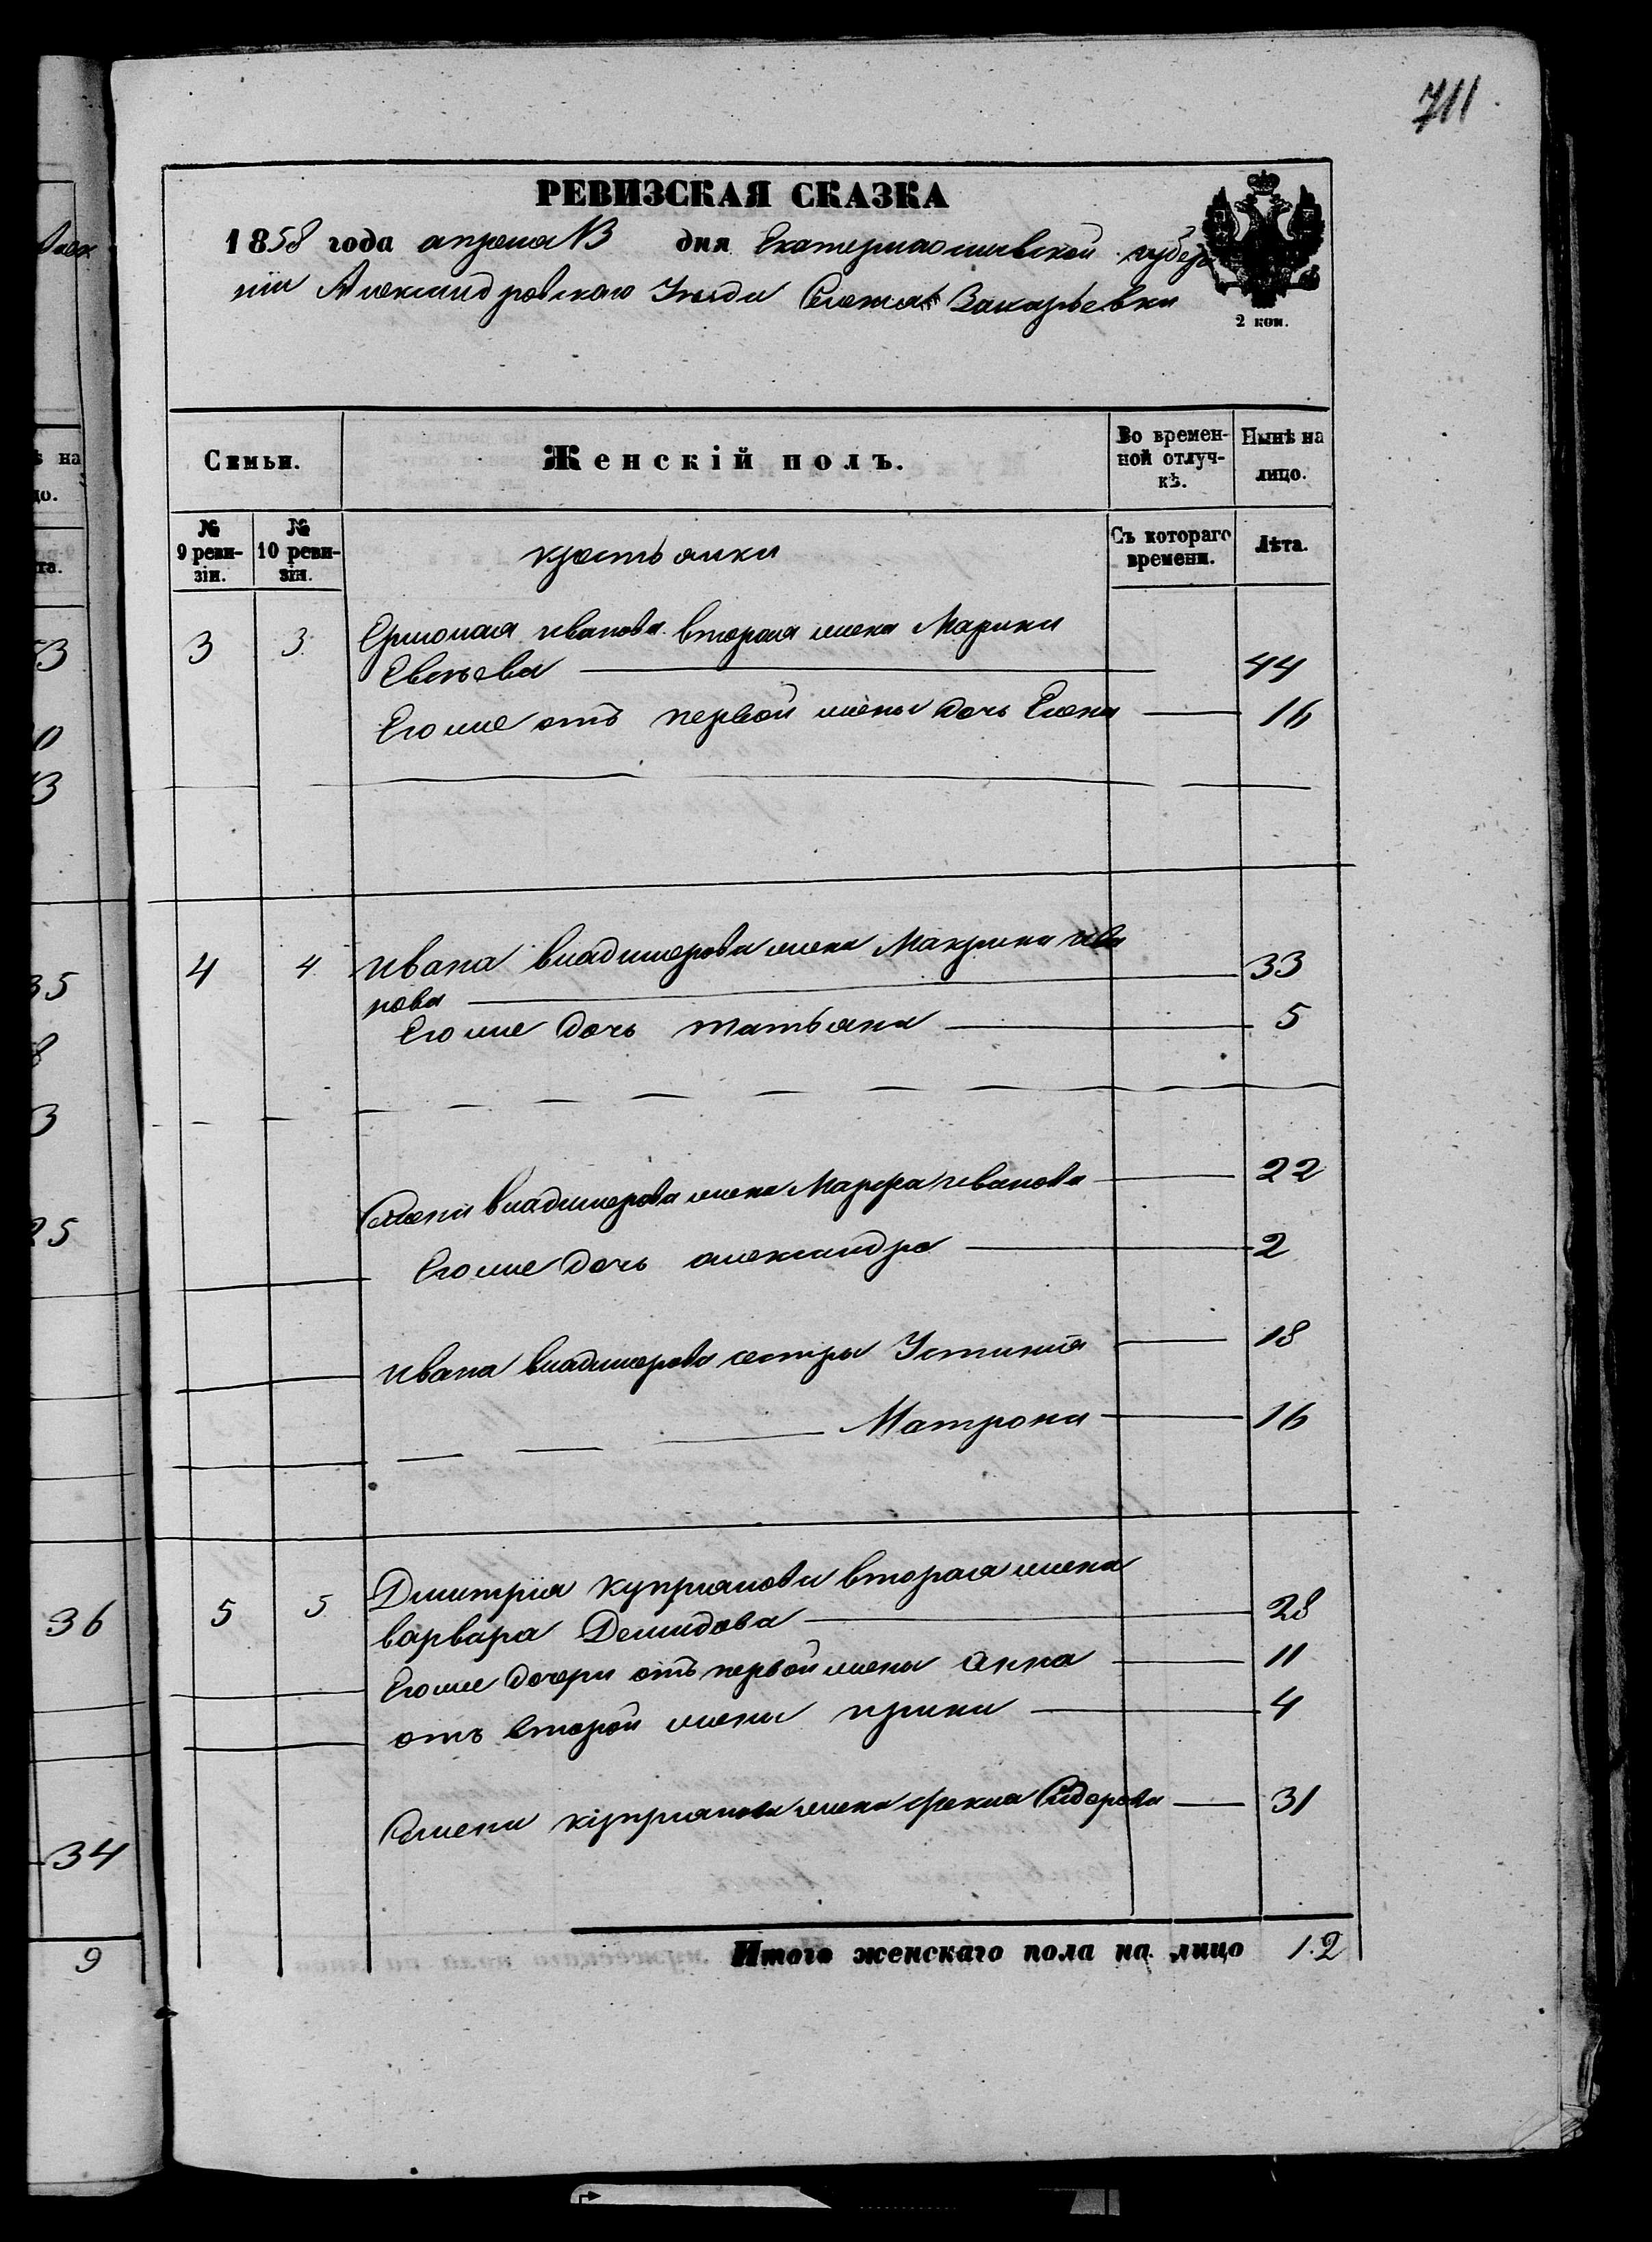 711
РЕВИЗСКАЯ СКАЗКА
1858 года апреля 13 дня Екатеринославской губер
ніи Александровского Уезда Захарьевки
2 коп.
Семьи.
Женскій полъ.
Во времен-
ной отлуч-
кѣ.
Нынѣ на
лицо.
№
9 реви-
зіи.
№
10 реви-
зіи.
крестьянки
Съ котораго
времени.
Лѣта.
3 3 иванова вторая жена Марина
44
Его же отъ первой жены дочь Елена 16
4 4 ивана владимерова жена Макрина ива
нова 33
Его же дочь татьяна 5
Семена владимерова жена Марфа иванова 22
Его же дочь александра 2
ивана владимерова сестры Устинія 18
Матрона 16
5 5 Дмитрія куприянова вторая жена
варвара Демидова 28
Его же дочери отъ первой жены анна 11
отъ второй жены ирина 4
Семена куприянова жена фекла Сидорова 31
Итого женскаго пола на лицо 12
на
цо.
та.
53
0
13
35
8
3
25
36
34
9